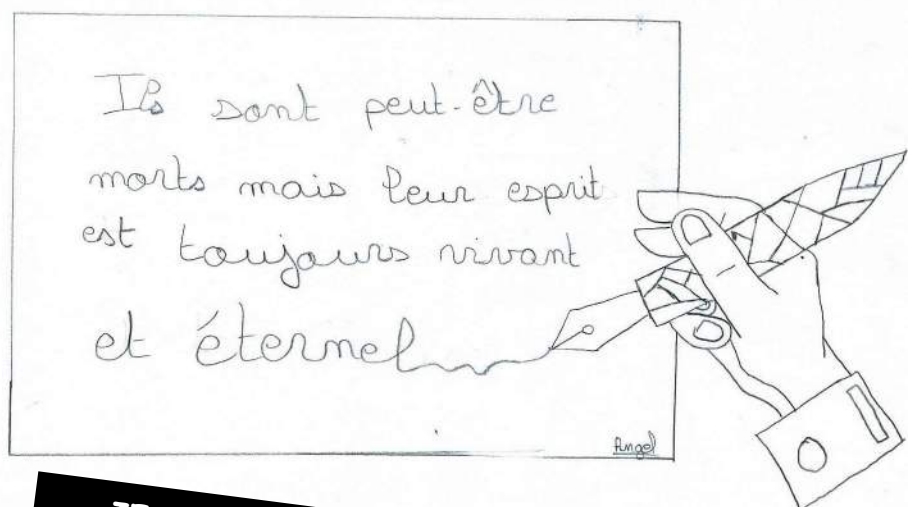 Ils sont peut-être
morts mais leur esprit
est toujours vivant
et éternel
Angel